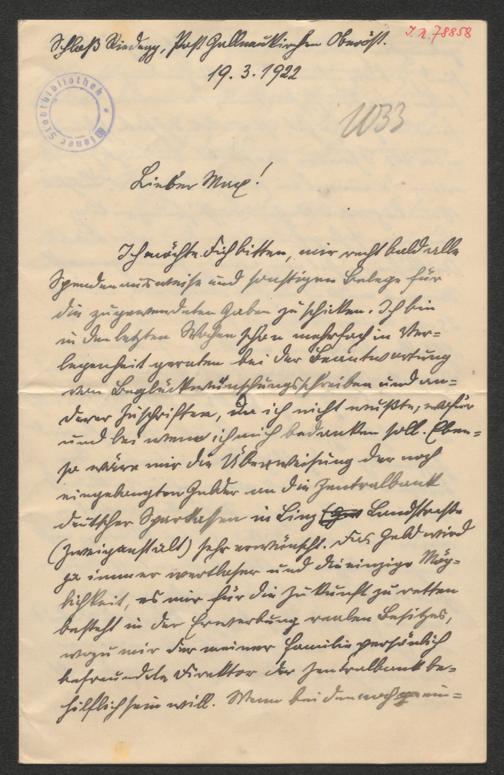 I.N. 78858
Schloß Riedegg, Post Gallneukirchen Oberöst.
19.3.1922
Wiener Stadtbibliothek
1033
Lieber Max!
Ich möchte Dich bitten, mir recht bald alle
Spendenausweise und sonstigen Belege für
die zugewendeten Gaben zu schicken. Ich bin
in den letzten Wochen schon mehrfach in Ver-
legenheit geraten bei der Beantwortung
von Beglückwünschungsschreiben und an-
derer Zuschriften, da ich nicht wußte, wofür
und bei wem ich mich bedanken soll. Eben-
so wäre mir die Überweisung der noch
eingelangten Gelder an die Zentralbank
deutscher Sparkassen in Linz Landstraße
(Zweiganstalt) sehr erwünscht. Das Geld wird
ja immer wertloser und die einzige Mög-
lichkeit, es mir für die Zukunft zu retten
besteht in der Erwerbung realen Besitzes,
wozu mir der meiner Familie persönlich
befreundete Direktor der Zentralbank be-
hilflich sein will. Wenn bei den noch